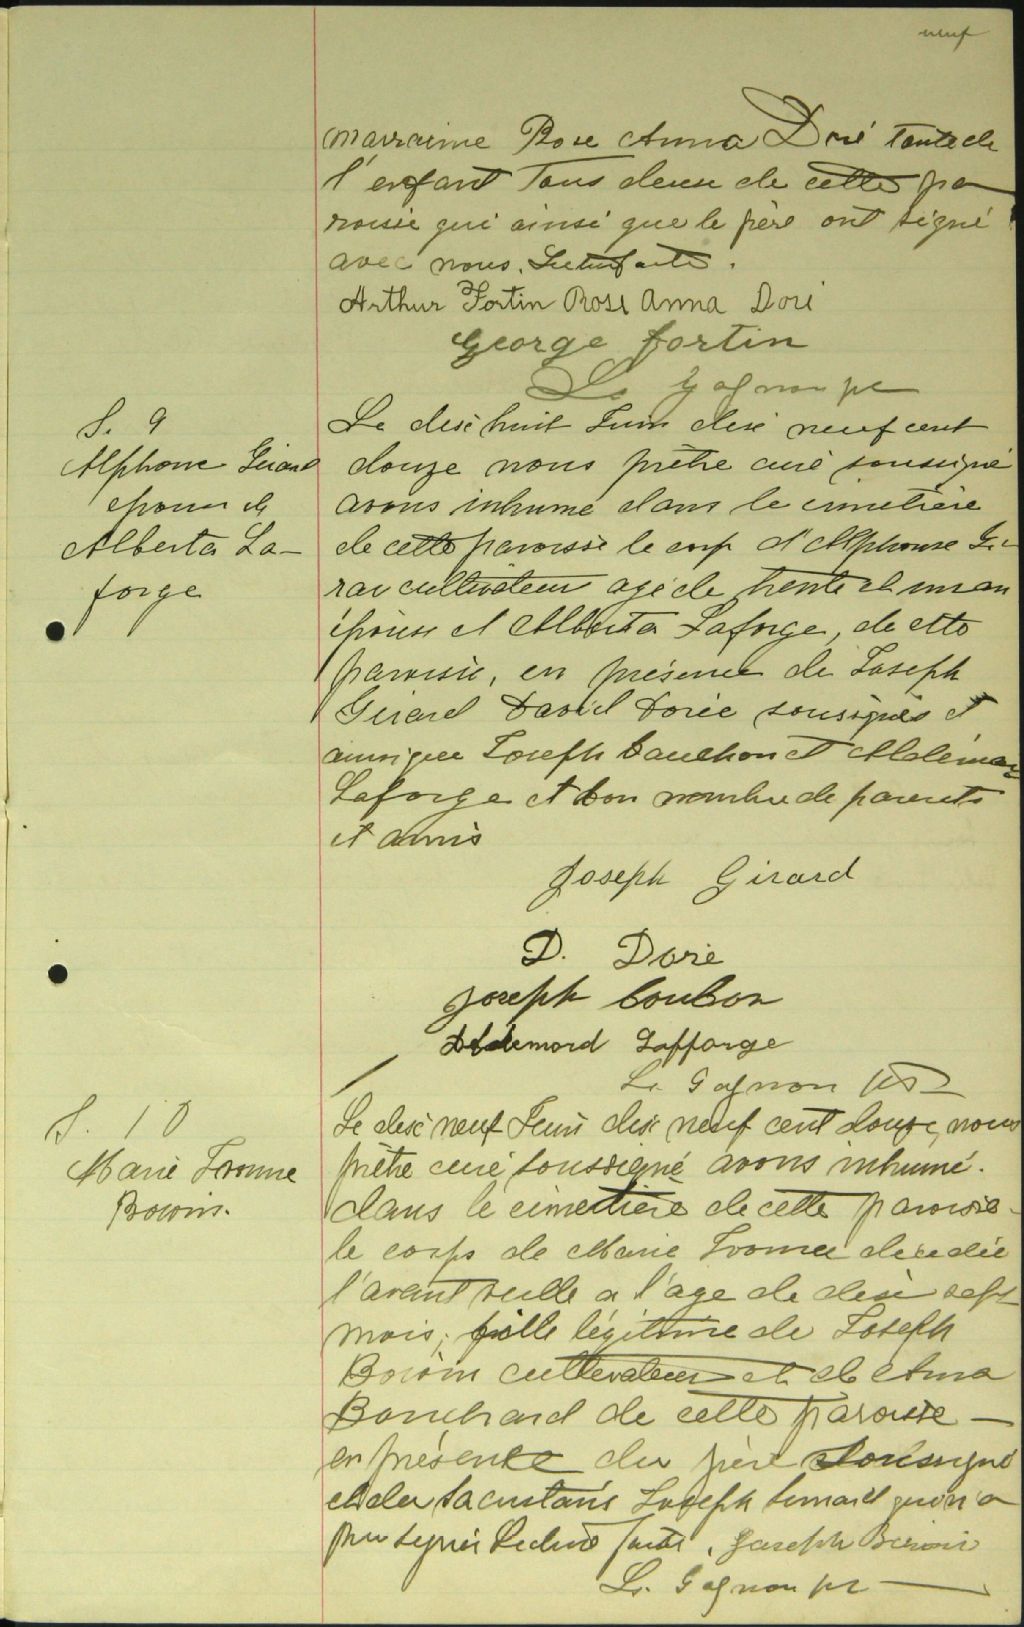 neuf
marraine Rose Anna Doré tante de
l'enfant Tous deux de cette pa
roisse qui ainsi que le père ont signé
avec nous. Lecture faite.
Arthur Fortin Rose Anna Doré
George Fortin
Ls Gagnon ptr
S. 9
Alphonse Girard
époux de
Alberta La-
forge
Le dix huit Juin dix neuf cent
douze nous prêtre curé soussigné
avons inhumé dans le cimetière
de cette paroisse le corps d'Alphonse Gi-
rar cultivateur agé de trente et un an
époux d Alberta Laforge, de cette
paroisse, en présence de Joseph
Girard David Dorée sousignés et
ainsi que Joseph Cauchon et Aldémar
Laforge et bon nombre de parents
et amis
Joseph Girard
D. Dore
Joseph Coubon
Aldemord Lafforge
Ls Gagnon ptr
S. 10
Marie Ivonne
Boivin.
Le dix neuf Juin dix neuf cent douze, nous
prêtre curé soussigné avons inhumé.
dans le cimetière de cette paroisse
le corps de Marie Ivonne décédée
l'avant veille a l'age de dix sept
mois, fille légitime de Joseph
Boivin cultivateur et de Anna
Bouchard de cette paroisse
en présence du père soussigné
et du sacristain Joseph Simard qui n'a
pu signer Lecture faite. Joseph Boivin
Ls. Gagnon ptr